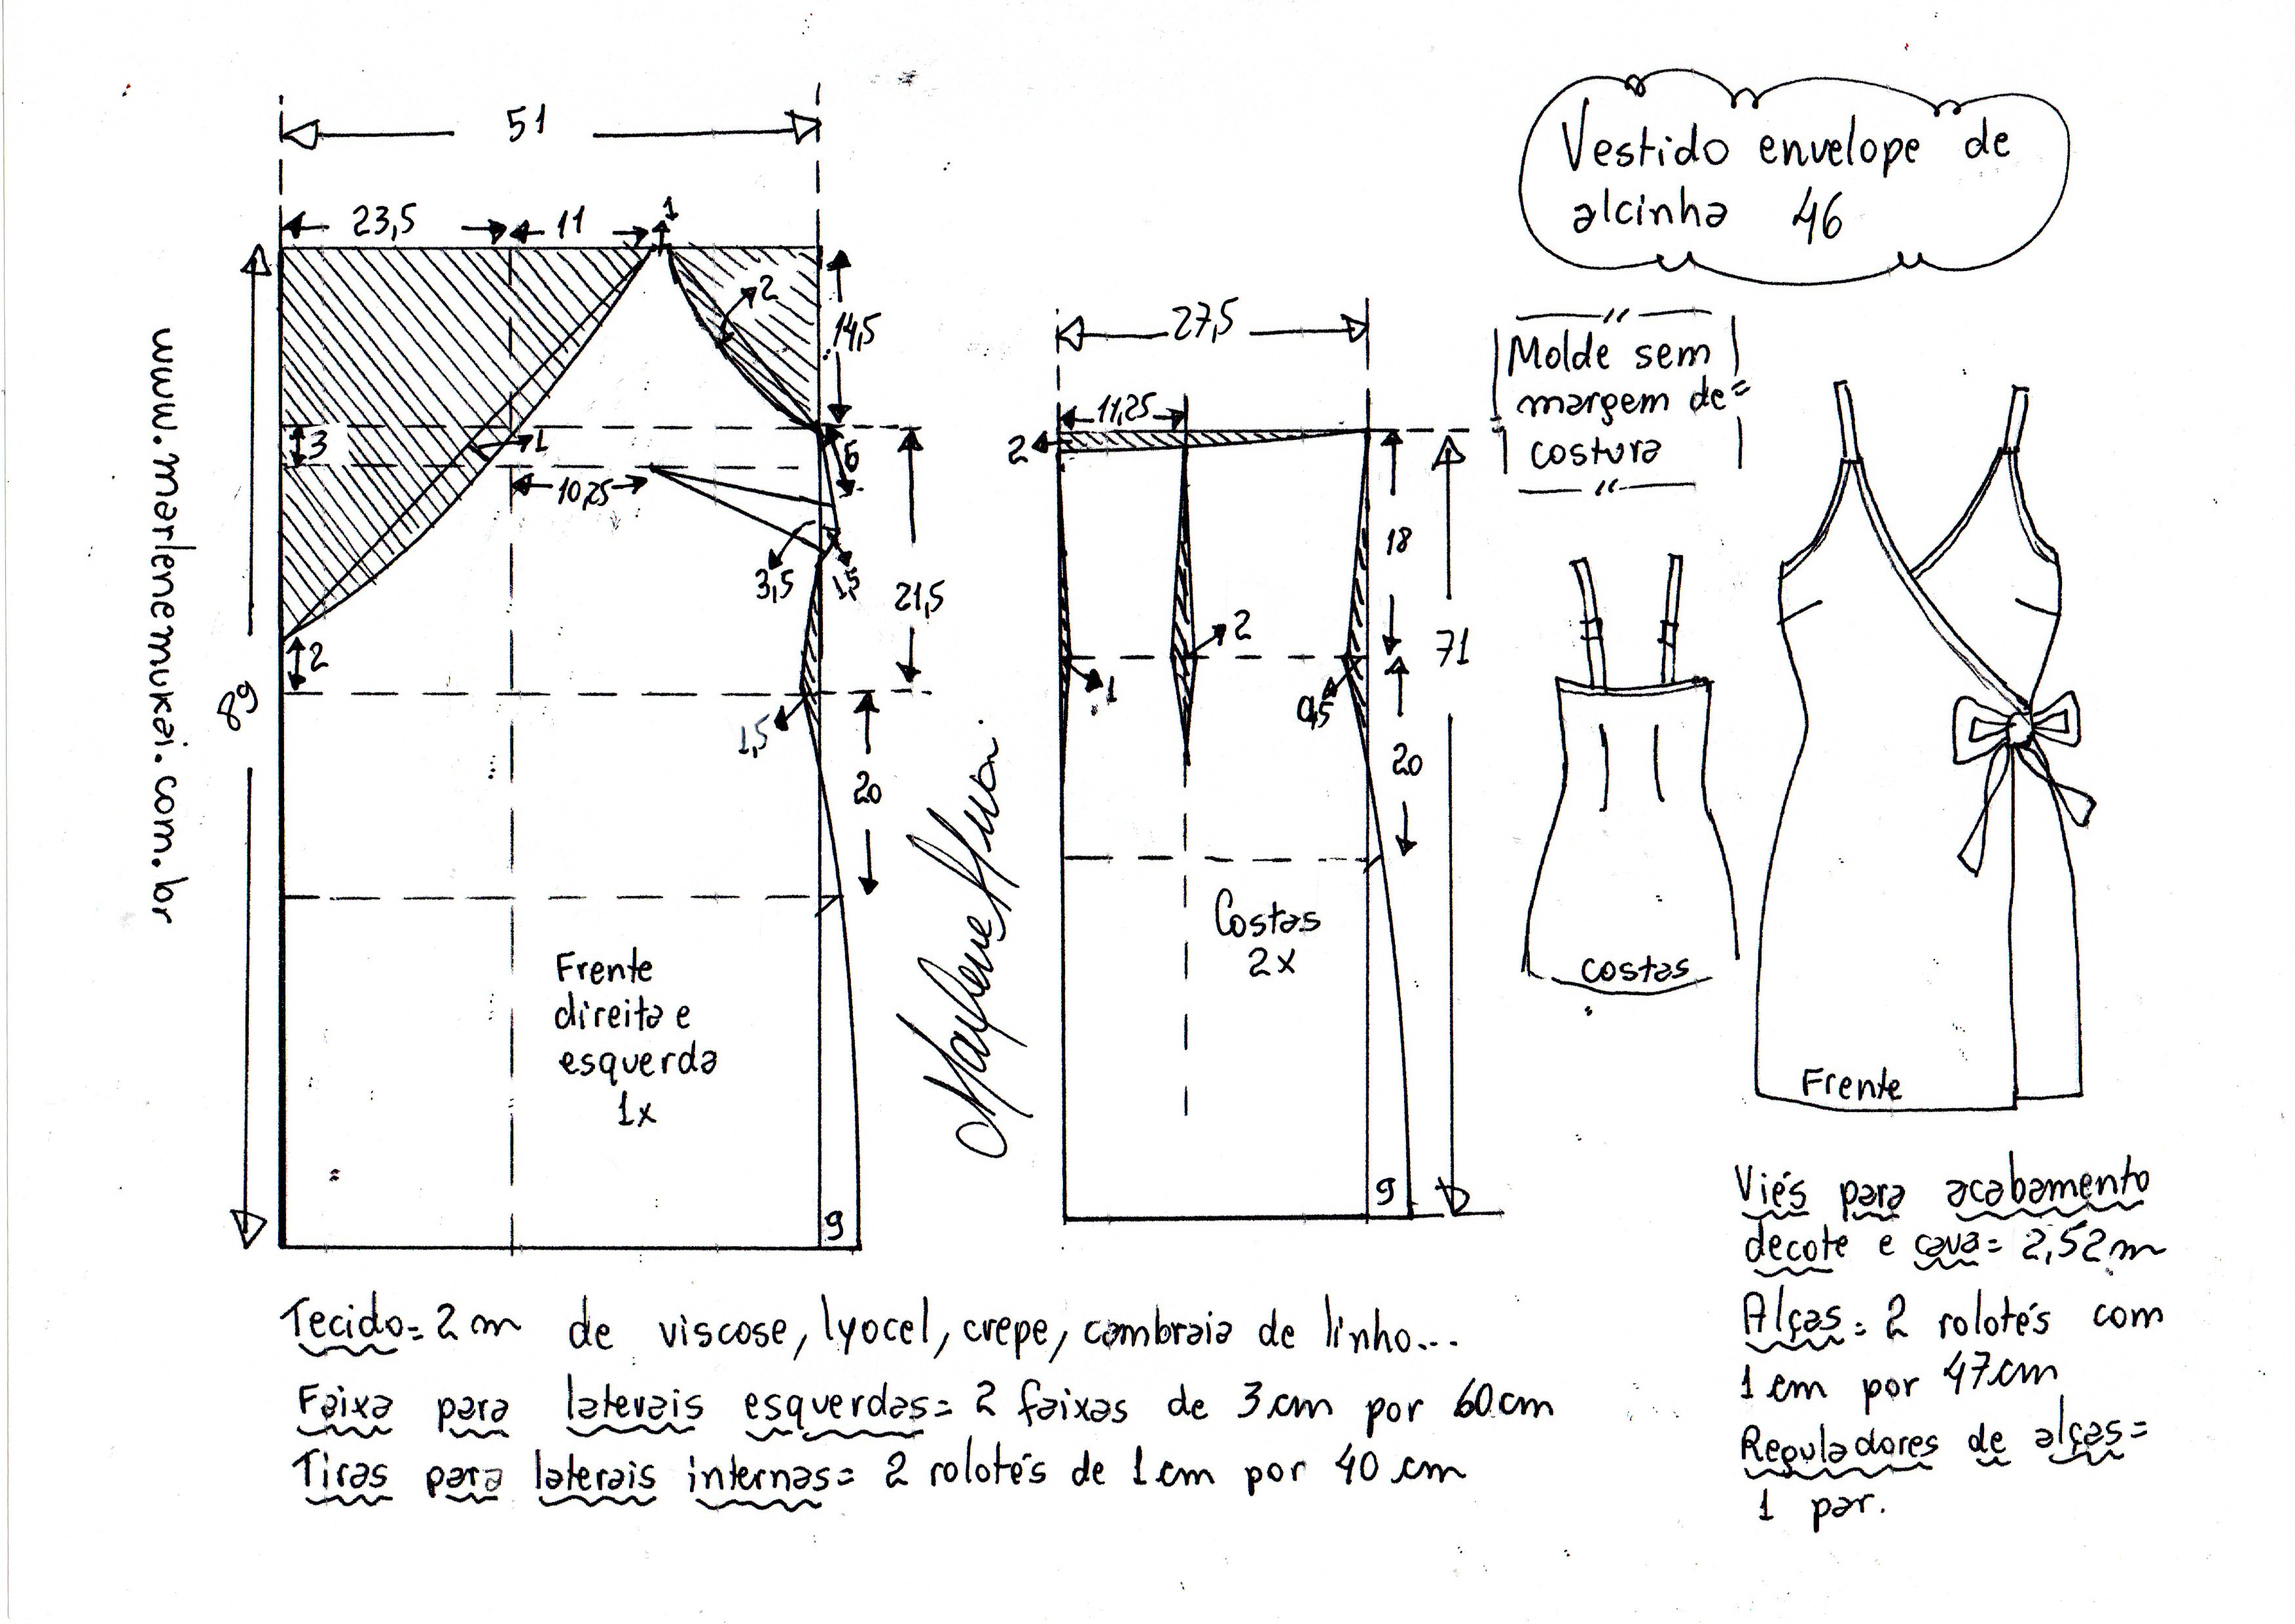 Vestido envelope de
alcinha 46
Molde sem
margem de=
costura
www.marlenemukai.com.br
51
23,5
11
1
2
14,5
3
1
6
10,25
3,5
1,5
21,5
2
89
1,5
20
Frente
direita e
esquerda
1x
9
27,5
11,25
2
18
2
71
1
0,5
20
Costas
2x
9
costas
Frente
Tecido= 2m de viscose, lyocel, crepe, cambraia de linho...
Faixa para laterais esquerdas= 2 faixas de 3cm por 60cm
Tiras para laterais internas= 2 rolotés de 1cm por 40cm
Viés para acabamento
decote e cava= 2,52m
Alças= 2 rolotés com
1cm por 47cm
Reguladores de alças=
1 par.